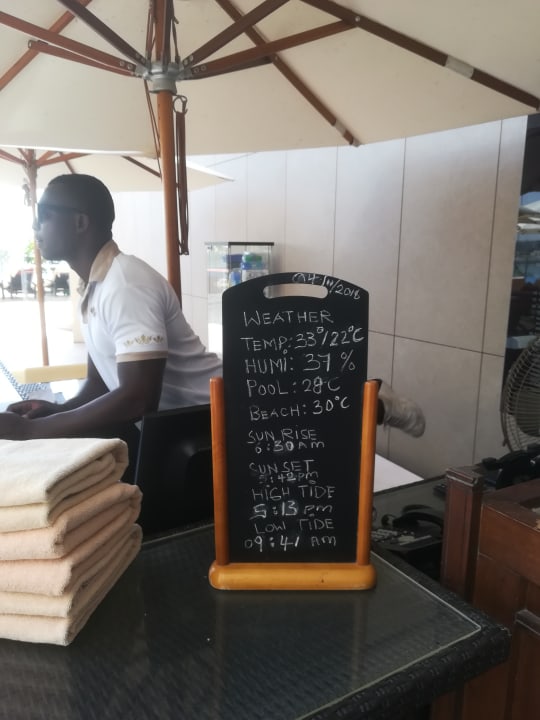 04/11/2018
WEATHER
TEMP: 33°/22°C
HUMI: 37 %
POOL: 28°C
BEACH: 30°C
SUN RISE
6:30 AM
SUN SET
5:42 PM
HIGH TIDE
5:13 PM
LOW TIDE
09:41 AM